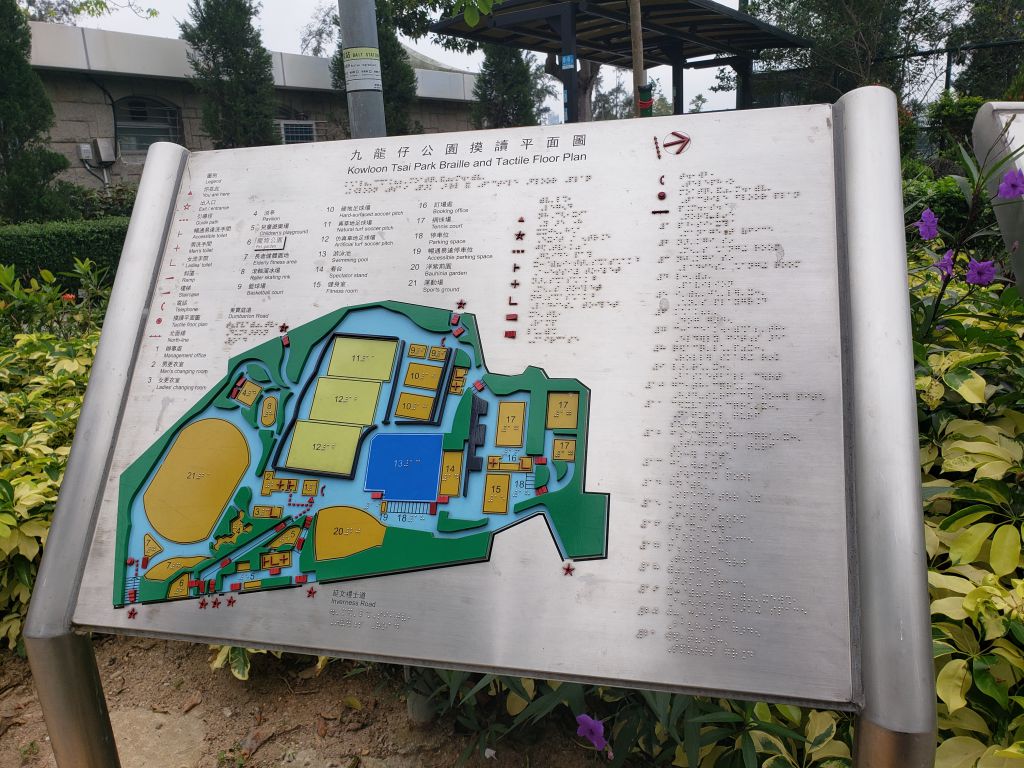 九龍仔公園摸讀平面圖
Kowloon Tsai Park Braille and Tactile Floor Plan
圖例
Legend
你在此
You are here
出入口
Exit / entrance
引導徑
Guide path
暢通易達洗手間
Accessible toilet
男洗手間
Men's toilet
女洗手間
Ladies' toilet
斜道
Ramp
樓梯
Staircase
電話
Telephone
摸讀平面圖
Tactile floor plan
北面線
North-line
1 辦事處
Management office
2 男更衣室
Men's changing room
3 女更衣室
Ladies' changing room
4 涼亭
Pavilion
5 兒童遊樂場
Children's playground
6 寵物公園
Pet garden
7 長者健體園地
Elderly fitness area
8 滾軸溜冰場
Roller skating rink
9 籃球場
Basketball court
10 硬地足球場
Hard-surfaced soccer pitch
11 真草地足球場
Natural turf soccer pitch
12 仿真草地足球場
Artificial turf soccer pitch
13 游泳池
Swimming pool
14 看台
Spectator stand
15 健身室
Fitness room
16 訂場處
Booking office
17 網球場
Tennis court
18 停車位
Parking space
19 暢通易達停車位
Accessible parking space
20 洋紫荊園
Bauhinia garden
21 運動場
Sports ground
東寶庭道
Dumbarton Road
11
9
9
10
12
10
12
13
14
17
17
17
16
15
18
8
21
20
19
18
3
7
6
5
延文禮士道
Inverness Road